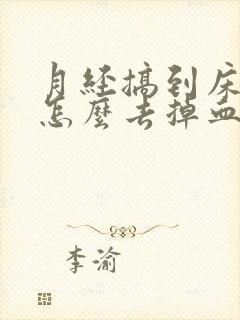 月経搞到床
怎麼去掉血
李渝